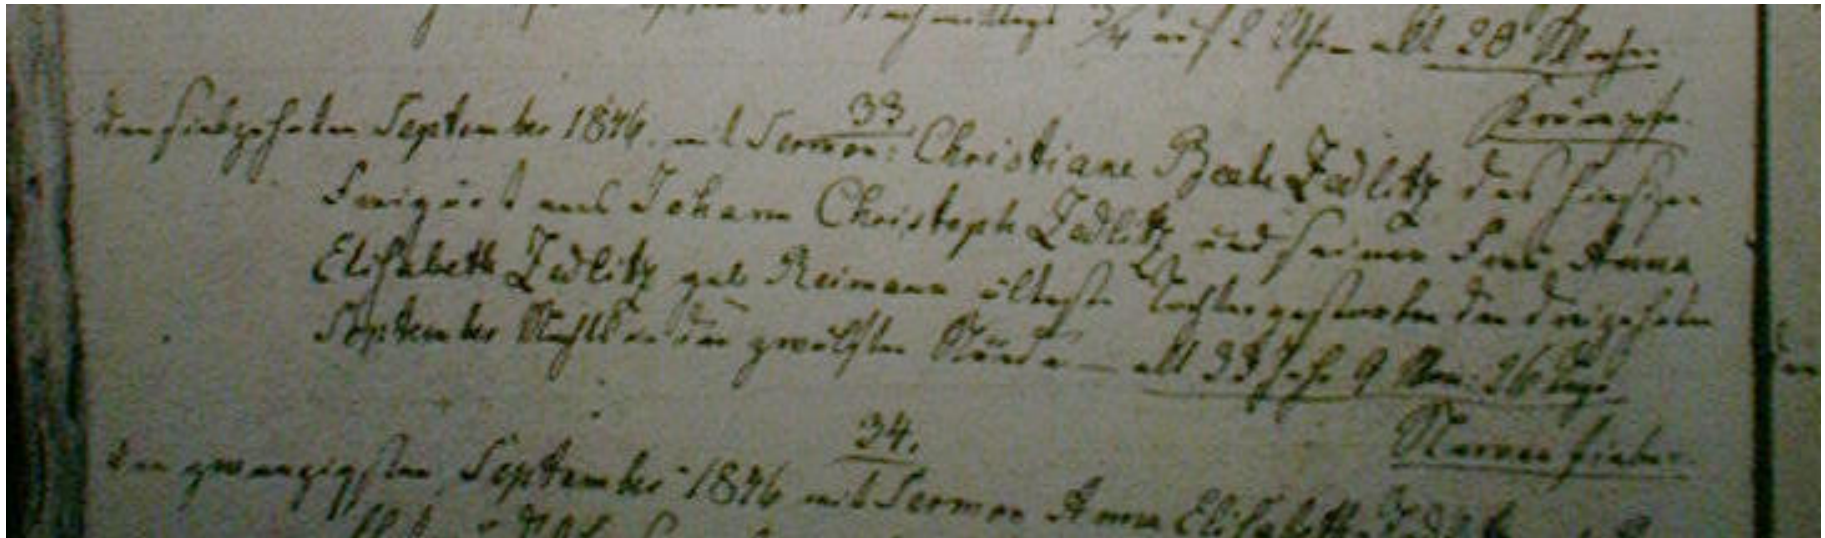 September Nachmittags 3/4 auf 2 Uhr alt 20 Wochen
Krämpfe.
33.
den siebzehnten September 1846. mit Sermon: Christiane Beate Zedlitz des hiesigen
Freigärt Johann Christoph Zedlitz und seiner Frau Anna
Elisabeth Zedlitz geb Reimann älteste Tochter gestorben den dreizehnten
September Nachts in der zwölften Stunde — alt 33 Jahr 9 Mon: 26 Tage
Nervenfieber.
34.
den zwanzigsten September 1846 mit Sermon Anna Elisabeth